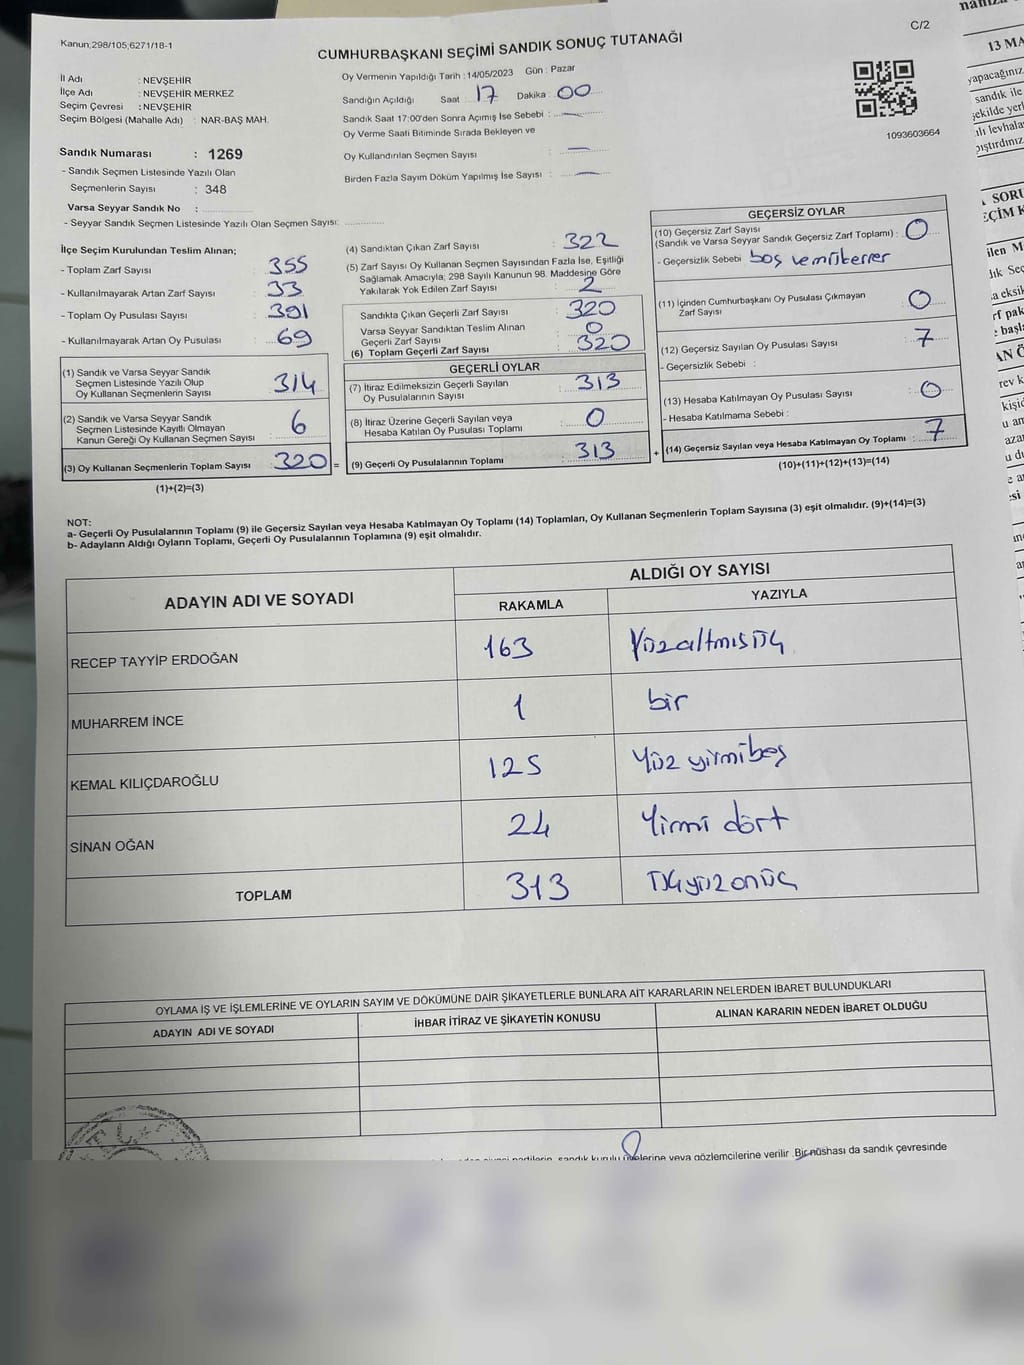 Kanun;298/105;6271/18-1
C/2
CUMHURBAŞKANI SEÇİMİ SANDIK SONUÇ TUTANAĞI
İl Adı : NEVŞEHİR
İlçe Adı : NEVŞEHİR MERKEZ
Seçim Çevresi : NEVŞEHİR
Seçim Bölgesi (Mahalle Adı) : NAR-BAŞ MAH.
Sandık Numarası : 1269
- Sandık Seçmen Listesinde Yazılı Olan
Seçmenlerin Sayısı : 348
Varsa Seyyar Sandık No :
- Seyyar Sandık Seçmen Listesinde Yazılı Olan Seçmen Sayısı:
Oy Vermenin Yapıldığı Tarih :14/05/2023 Gün : Pazar
Sandığın Açıldığı Saat : 17 Dakika : 00
Sandık Saat 17:00'den Sonra Açımış İse Sebebi : —
Oy Verme Saati Bitiminde Sırada Bekleyen ve
Oy Kullandırılan Seçmen Sayısı : —
Birden Fazla Sayım Döküm Yapılmış İse Sayısı : —
1093603664
İlçe Seçim Kurulundan Teslim Alınan;
- Toplam Zarf Sayısı : 355
- Kullanılmayarak Artan Zarf Sayısı : 33
- Toplam Oy Pusulası Sayısı : 391
- Kullanılmayarak Artan Oy Pusulası : 69
(1) Sandık ve Varsa Seyyar Sandık
Seçmen Listesinde Yazılı Olup
Oy Kullanan Seçmenlerin Sayısı : 314
(2) Sandık ve Varsa Seyyar Sandık
Seçmen Listesinde Kayıtlı Olmayan
Kanun Gereği Oy Kullanan Seçmen Sayısı : 6
(3) Oy Kullanan Seçmenlerin Toplam Sayısı : 320 =
(1)+(2)=(3)
(4) Sandıktan Çıkan Zarf Sayısı : 322
(5) Zarf Sayısı Oy Kullanan Seçmen Sayısından Fazla İse, Eşitliği
Sağlamak Amacıyla; 298 Sayılı Kanunun 98. Maddesine Göre
Yakılarak Yok Edilen Zarf Sayısı : 2
Sandıkta Çıkan Geçerli Zarf Sayısı : 320
Varsa Seyyar Sandıktan Teslim Alınan
Geçerli Zarf Sayısı : 0
(6) Toplam Geçerli Zarf Sayısı : 320
GEÇERLİ OYLAR
(7) İtiraz Edilmeksizin Geçerli Sayılan
Oy Pusulalarının Sayısı : 313
(8) İtiraz Üzerine Geçerli Sayılan veya
Hesaba Katılan Oy Pusulası Toplamı : 0
(9) Geçerli Oy Pusulalarının Toplamı : 313 +
GEÇERSİZ OYLAR
(10) Geçersiz Zarf Sayısı
(Sandık ve Varsa Seyyar Sandık Geçersiz Zarf Toplamı) : 0
- Geçersizlik Sebebi : boş
(11) İçinden Cumhurbaşkanı Oy Pusulası Çıkmayan
Zarf Sayısı : 0
(12) Geçersiz Sayılan Oy Pusulası Sayısı : 7
- Geçersizlik Sebebi :
(13) Hesaba Katılmayan Oy Pusulası Sayısı : 0
- Hesaba Katılmama Sebebi :
(14) Geçersiz Sayılan veya Hesaba Katılmayan Oy Toplamı : 7
(10)+(11)+(12)+(13)=(14)
NOT:
a- Geçerli Oy Pusulalarının Toplamı (9) ile Geçersiz Sayılan veya Hesaba Katılmayan Oy Toplamı (14) Toplamları, Oy Kullanan Seçmenlerin Toplam Sayısına (3) eşit olmalıdır. (9)+(14)=(3)
b- Adayların Aldığı Oyların Toplamı, Geçerli Oy Pusulalarının Toplamına (9) eşit olmalıdır.
ADAYIN ADI VE SOYADI ALDIĞI OY SAYISI
RAKAMLA YAZIYLA
RECEP TAYYİP ERDOĞAN 163 Yüzaltmışüç
MUHARREM İNCE 1 bir
KEMAL KILIÇDAROĞLU 125 Yüz yirmibeş
SİNAN OĞAN 24 Yirmi dört
TOPLAM 313 Üçyüzonüç
OYLAMA İŞ VE İŞLEMLERİNE VE OYLARIN SAYIM VE DÖKÜMÜNE DAİR ŞİKAYETLERLE BUNLARA AİT KARARLARIN NELERDEN İBARET BULUNDUKLARI
ADAYIN ADI VE SOYADI İHBAR İTİRAZ VE ŞİKAYETİN KONUSU ALINAN KARARIN NEDEN İBARET OLDUĞU
sandık kurulu üyelerine veya gözlemcilerine verilir .Bir nüshası da sandık çevresinde